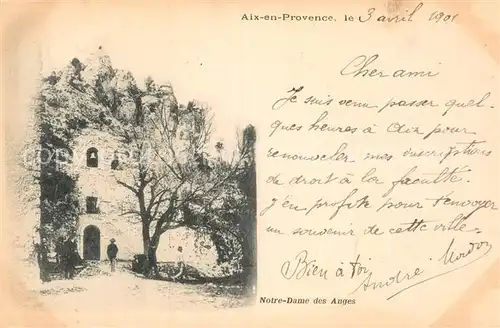 Aix-en-Provence, le 3 avril 1901
Cher ami
Je suis venu passer quel-
ques heures à Aix pour
renouveler mes inscriptions
de droit à la faculté.
J'en profite pour t'envoyer
un souvenir de cette ville.
Bien à toi
André
Notre-Dame des Anges